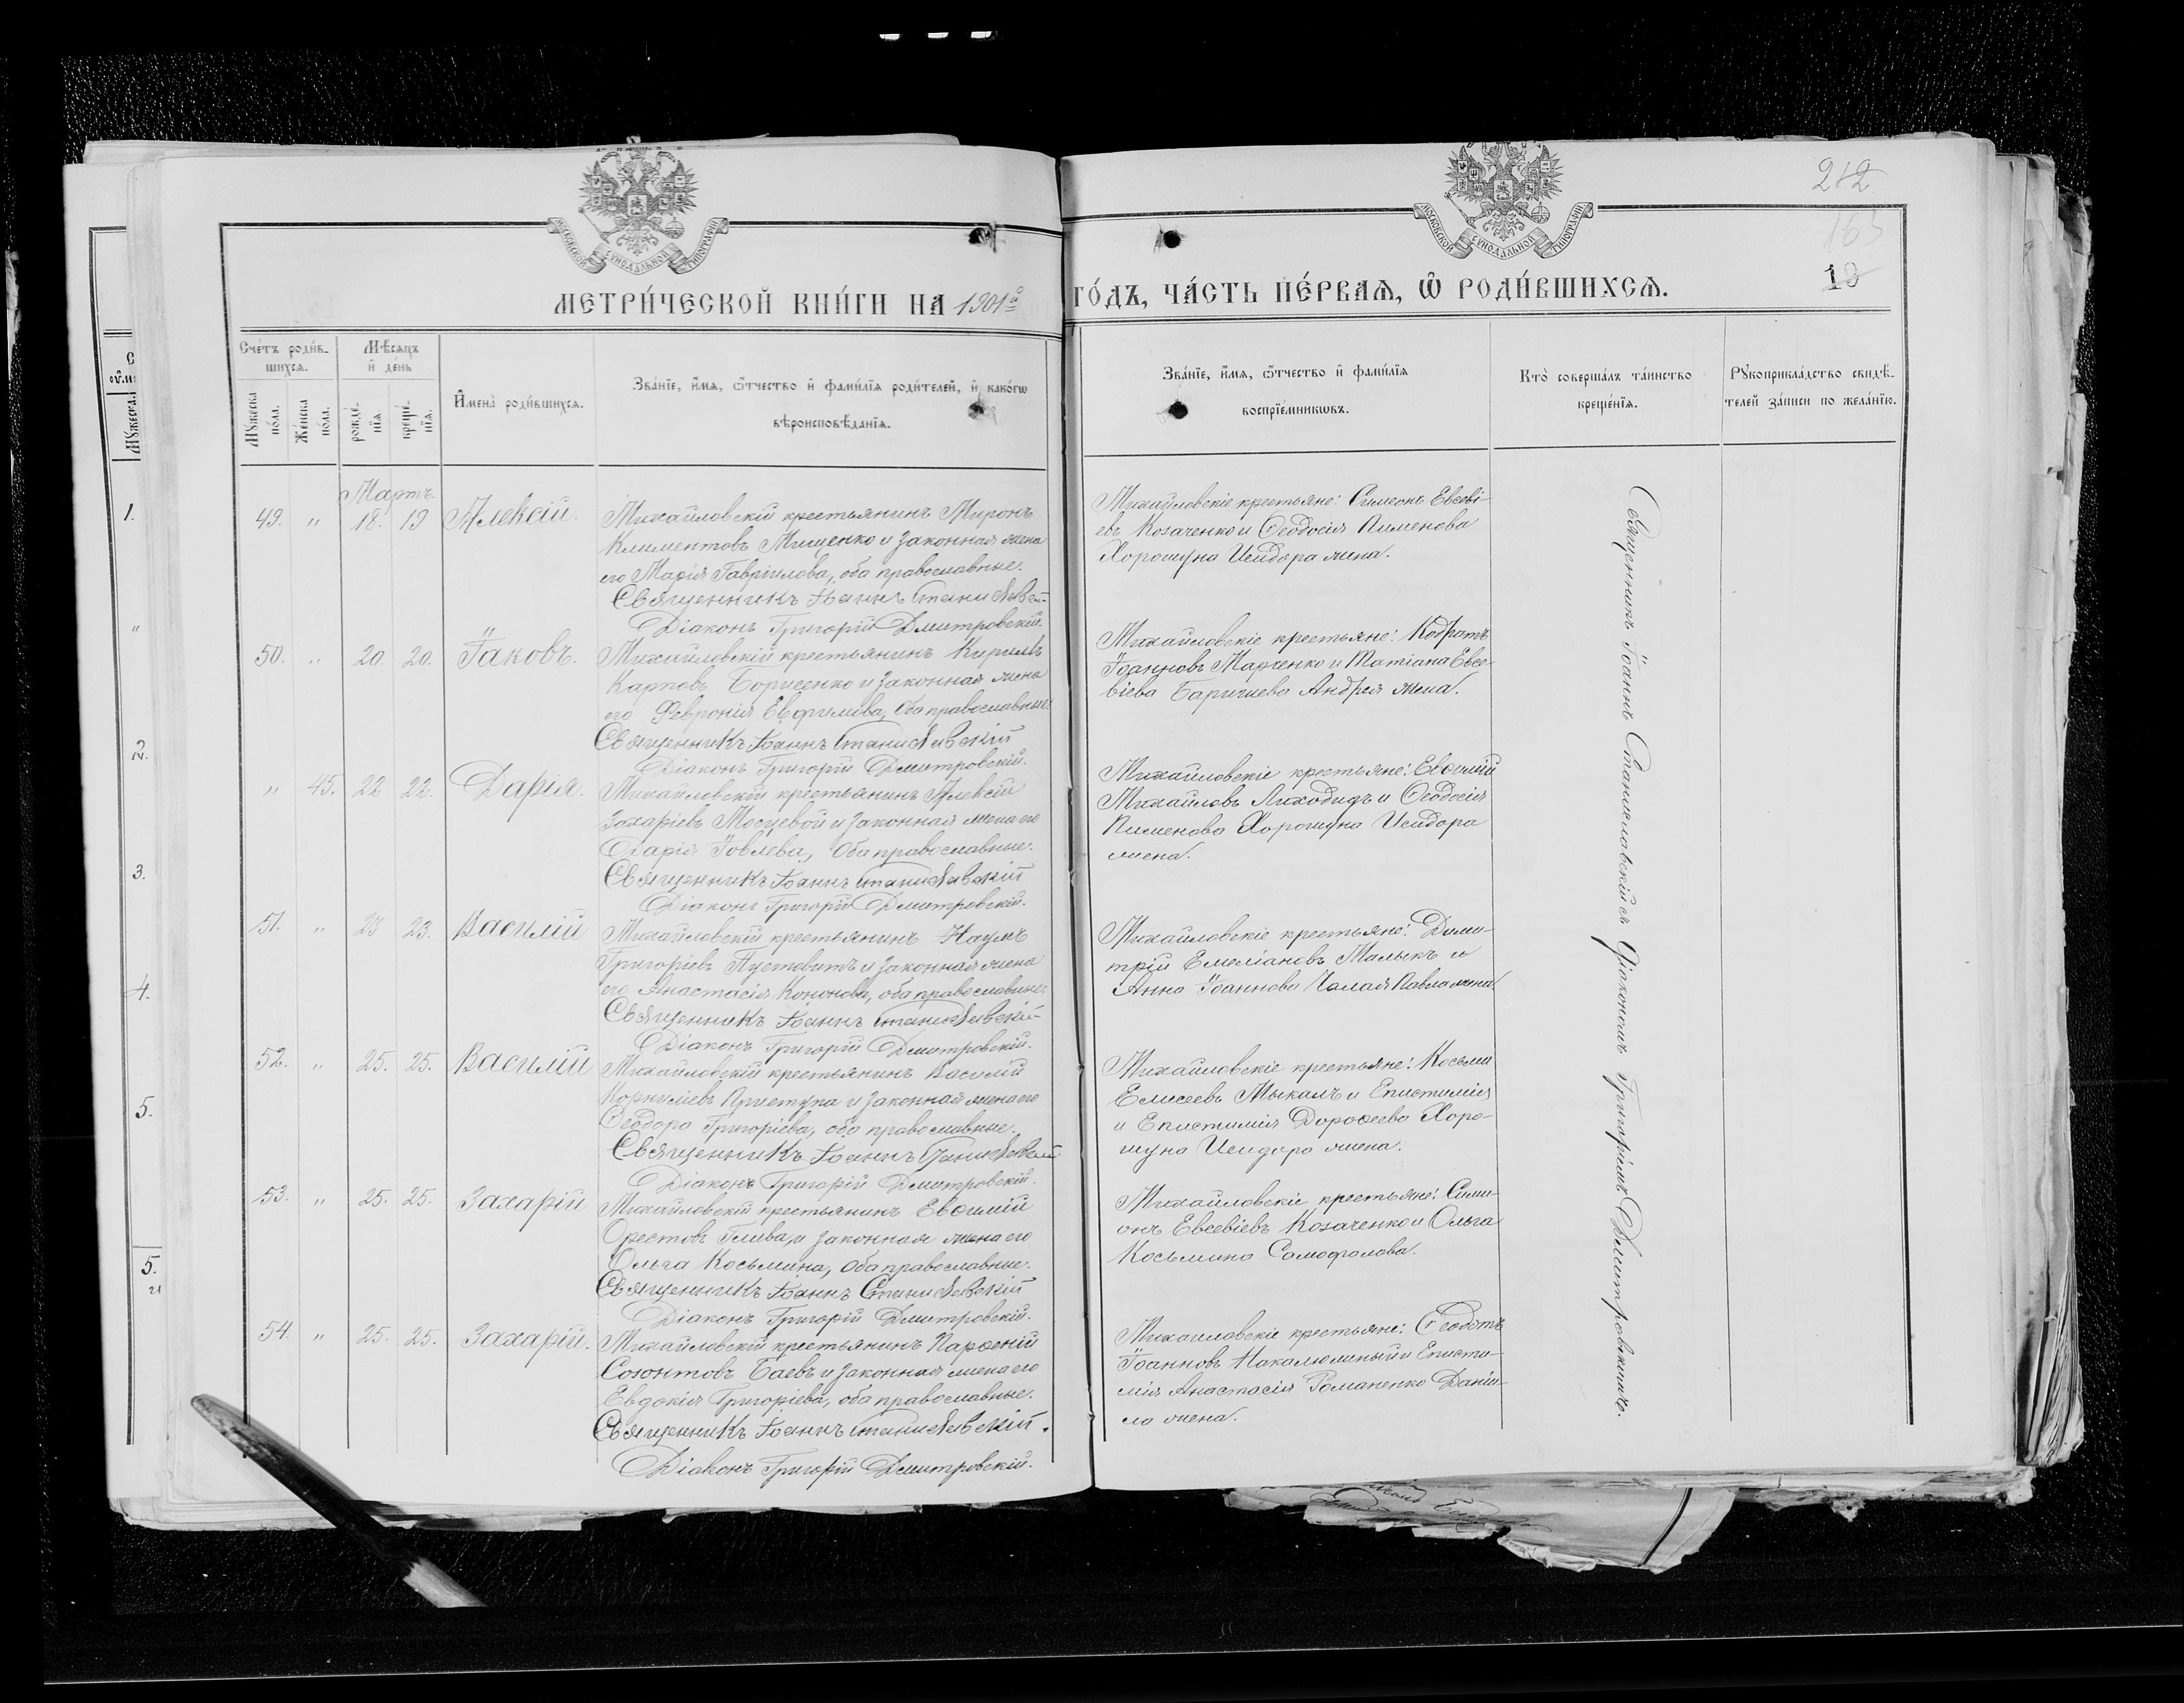 МОСКОВСКОЙ СѴНОДАЛЬНОЙ ТИПОГРАФІИ
МОСКОВСКОЙ СѴНОДАЛЬНОЙ ТИПОГРАФІИ
212
163
19
МЕТРИ́ЧЕСКОЙ КНИ́ГИ НА 1901й
ГО́ДЪ, ЧА́СТЬ ПЕ́РВАѦ, Ѽ РОДИ́ВШИХСѦ.
Сче́тъ роди́в-
шихсѧ.
Мѣ́сѧцъ
и҆ де́нь
Мꙋ́жеска по́ла.
Же́нска по́ла.
рожде́-
нїѧ
креще́-
нїѧ.
И҆мена̀ роди́вшихсѧ.
Зва́нїе, и҆́мѧ, ѻ҆́тчество и҆ фами́лїѧ роди́телей, и҆ како́гѡ
вѣроисповѣ́данїѧ.
Зва́нїе, и҆́мѧ, ѻ҆́тчество и҆ фами́лїѧ
воспрїе́мникѡвъ.
Кто̀ соверша́лъ та́инство
креще́нїѧ.
Рꙋкоприкла́дство свидѣ́-
телей за́писи по жела́нїю.
Мартъ.
49. " 18. 19 Алексій.
Михайловскій крестьянинъ Миронъ
Климентовъ Мищенко и законная жена
его Марія Гавріилова, оба православные.
Священникъ Іоаннъ Станиславскій
Діаконъ Григорій Дмитровскій.
Михайловскіе крестьяне: Симеонъ Евсеві-
евъ Козаченко и Ѳеодосія Пименова
Хорошуна Исидора жена.
50. " 20. 20. Іаковъ.
Михайловскій крестьянинъ Кириллъ
Карповъ Борисенко и законная жена
его Февронія Евфимиева, оба православные.
Священникъ Іоаннъ Станиславскій
Діаконъ Григорій Дмитровскій.
Михайловскіе крестьяне: Кодратъ
Іоанновъ Марченко и Татіана Евсе-
віева Баришева Андрея жена.
" 45. 22 22. Дарія.
Михайловскій крестьянинъ Алексій
Захаріевъ Мосцевой и законная жена его
Дарія Іовлева, оба православные.
Священникъ Іоаннъ Станиславскій
Діаконъ Григорій Дмитровскій.
Михайловскіе крестьяне: Евѳимій
Михайловъ Лиходидъ и Ѳеодосія
Пименова Хорошуна Исидора
жена.
51. " 23 23. Василій
Михайловскій крестьянинъ Наумъ
Григоріевъ Пустовитъ и законная жена
его Анастасія Кононова, оба православные.
Священникъ Іоаннъ Станиславскій
Діаконъ Григорій Дмитровскій.
Михайловскіе крестьяне: Дими-
трій Емеліановъ Малыкъ и
Анна Іоаннова Чалая Павла жена.
52. " 25. 25. Василій
Михайловскій крестьянинъ Василій
Корниліевъ Приступа и законная жена его
Ѳеодора Григоріева, оба православные.
Священникъ Іоаннъ Станиславскій
Діаконъ Григорій Дмитровскій.
Михайловскіе крестьяне: Косьма
Елисеевъ Мыкалъ и Епистимія
и Епистимія Дороѳеева Хоро-
шуна Исидора жена.
53. " 25. 25. Захарій
Михайловскій крестьянинъ Евѳимій
Орестовъ Глива, и законная жена его
Ольга Косьмина, оба православные.
Священникъ Іоаннъ Станиславскій
Діаконъ Григорій Дмитровскій.
Михайловскіе крестьяне: Симе-
онъ Евсевіевъ Козаченко и Ольга
Косьмина Самофалова.
54. " 25. 25. Захарій.
Михайловскій крестьянинъ Парѳеній
Созонтовъ Баевъ и законная жена его
Евдокія Григоріева, оба православные.
Священникъ Іоаннъ Станиславскій.
Діаконъ Григорій Дмитровскій.
Михайловскіе крестьяне: Ѳеодотъ
Іоанновъ и Еписти-
мія Анастасія Романенко Даніи-
ла жена.
Священникъ Іоаннъ Станиславскій съ Діакономъ Григоріемъ Дмитровскимъ.
1.
"
2.
3.
4.
5.
5.
21